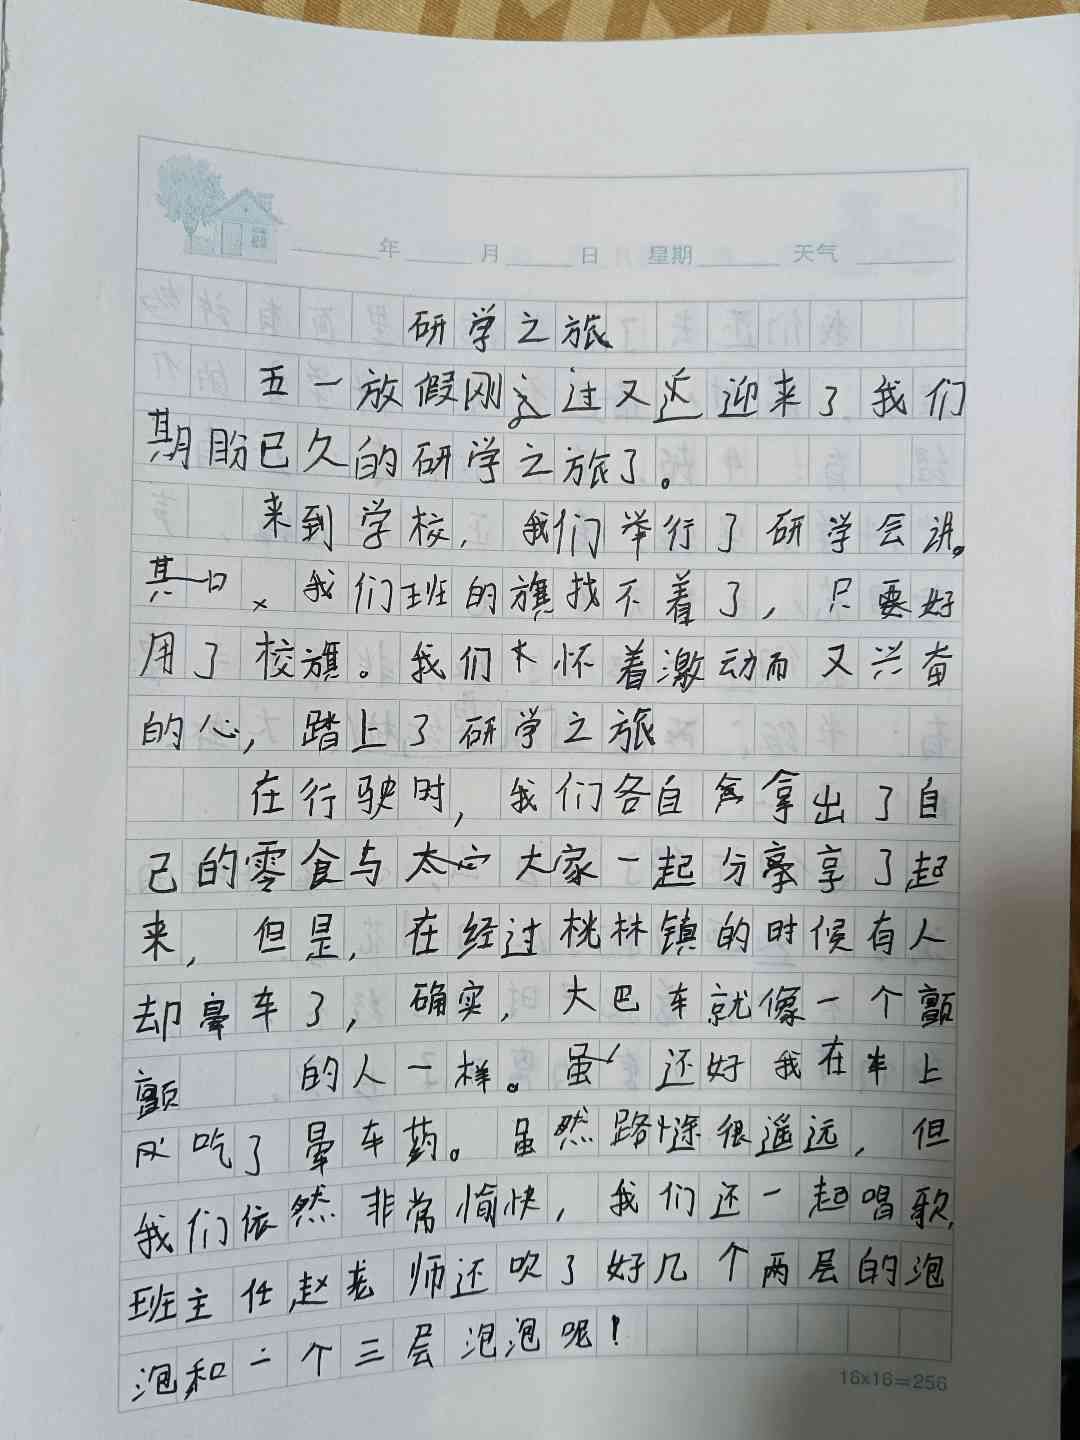 年 月 日 星期 天气
研学之旅
五一放假刚过又迎来了我们
期盼已久的研学之旅了。
来到学校，我们举行了研学会讲。
其我们班的旗找不着了，只要好
用了校旗。我们怀着激动而又兴奋
的心，踏上了研学之旅
在行驶时，我们各自拿出了自
己的零食与大家一起分享了起
来，但是，在经过桃林镇的时候有人
却晕车了，确实，大巴车就像一个颤
颤的人一样。还好我在车上
吃了晕车药。虽然路途很遥远，但
我们依然非常愉快，我们还一起唱歌，
班主任赵老师还吹了好几个两层的泡
泡和一个三层泡泡呢！
16×16=256